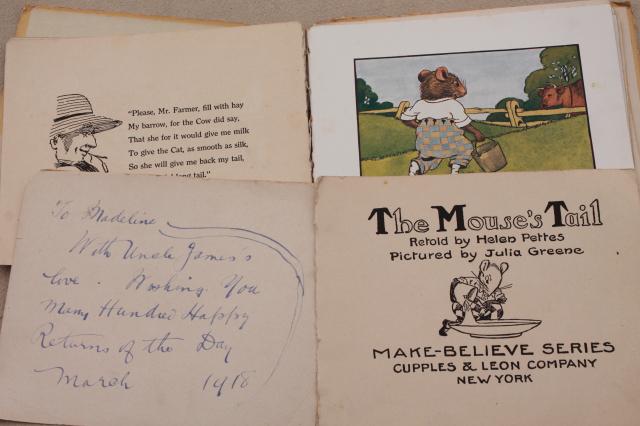 "Please, Mr. Farmer, fill with hay
My barrow, for the Cow did say,
That she for it would give me milk
To give the Cat, as smooth as silk,
So she will give me back my tail,
long tail."
To Madeline
With Uncle James's
love. Wishing You
Many Hundred Happy
Returns of the Day
March 1918
The Mouse's Tail
Retold by Helen Pettes
Pictured by Julia Greene
MAKE-BELIEVE SERIES
CUPPLES & LEON COMPANY
NEW YORK